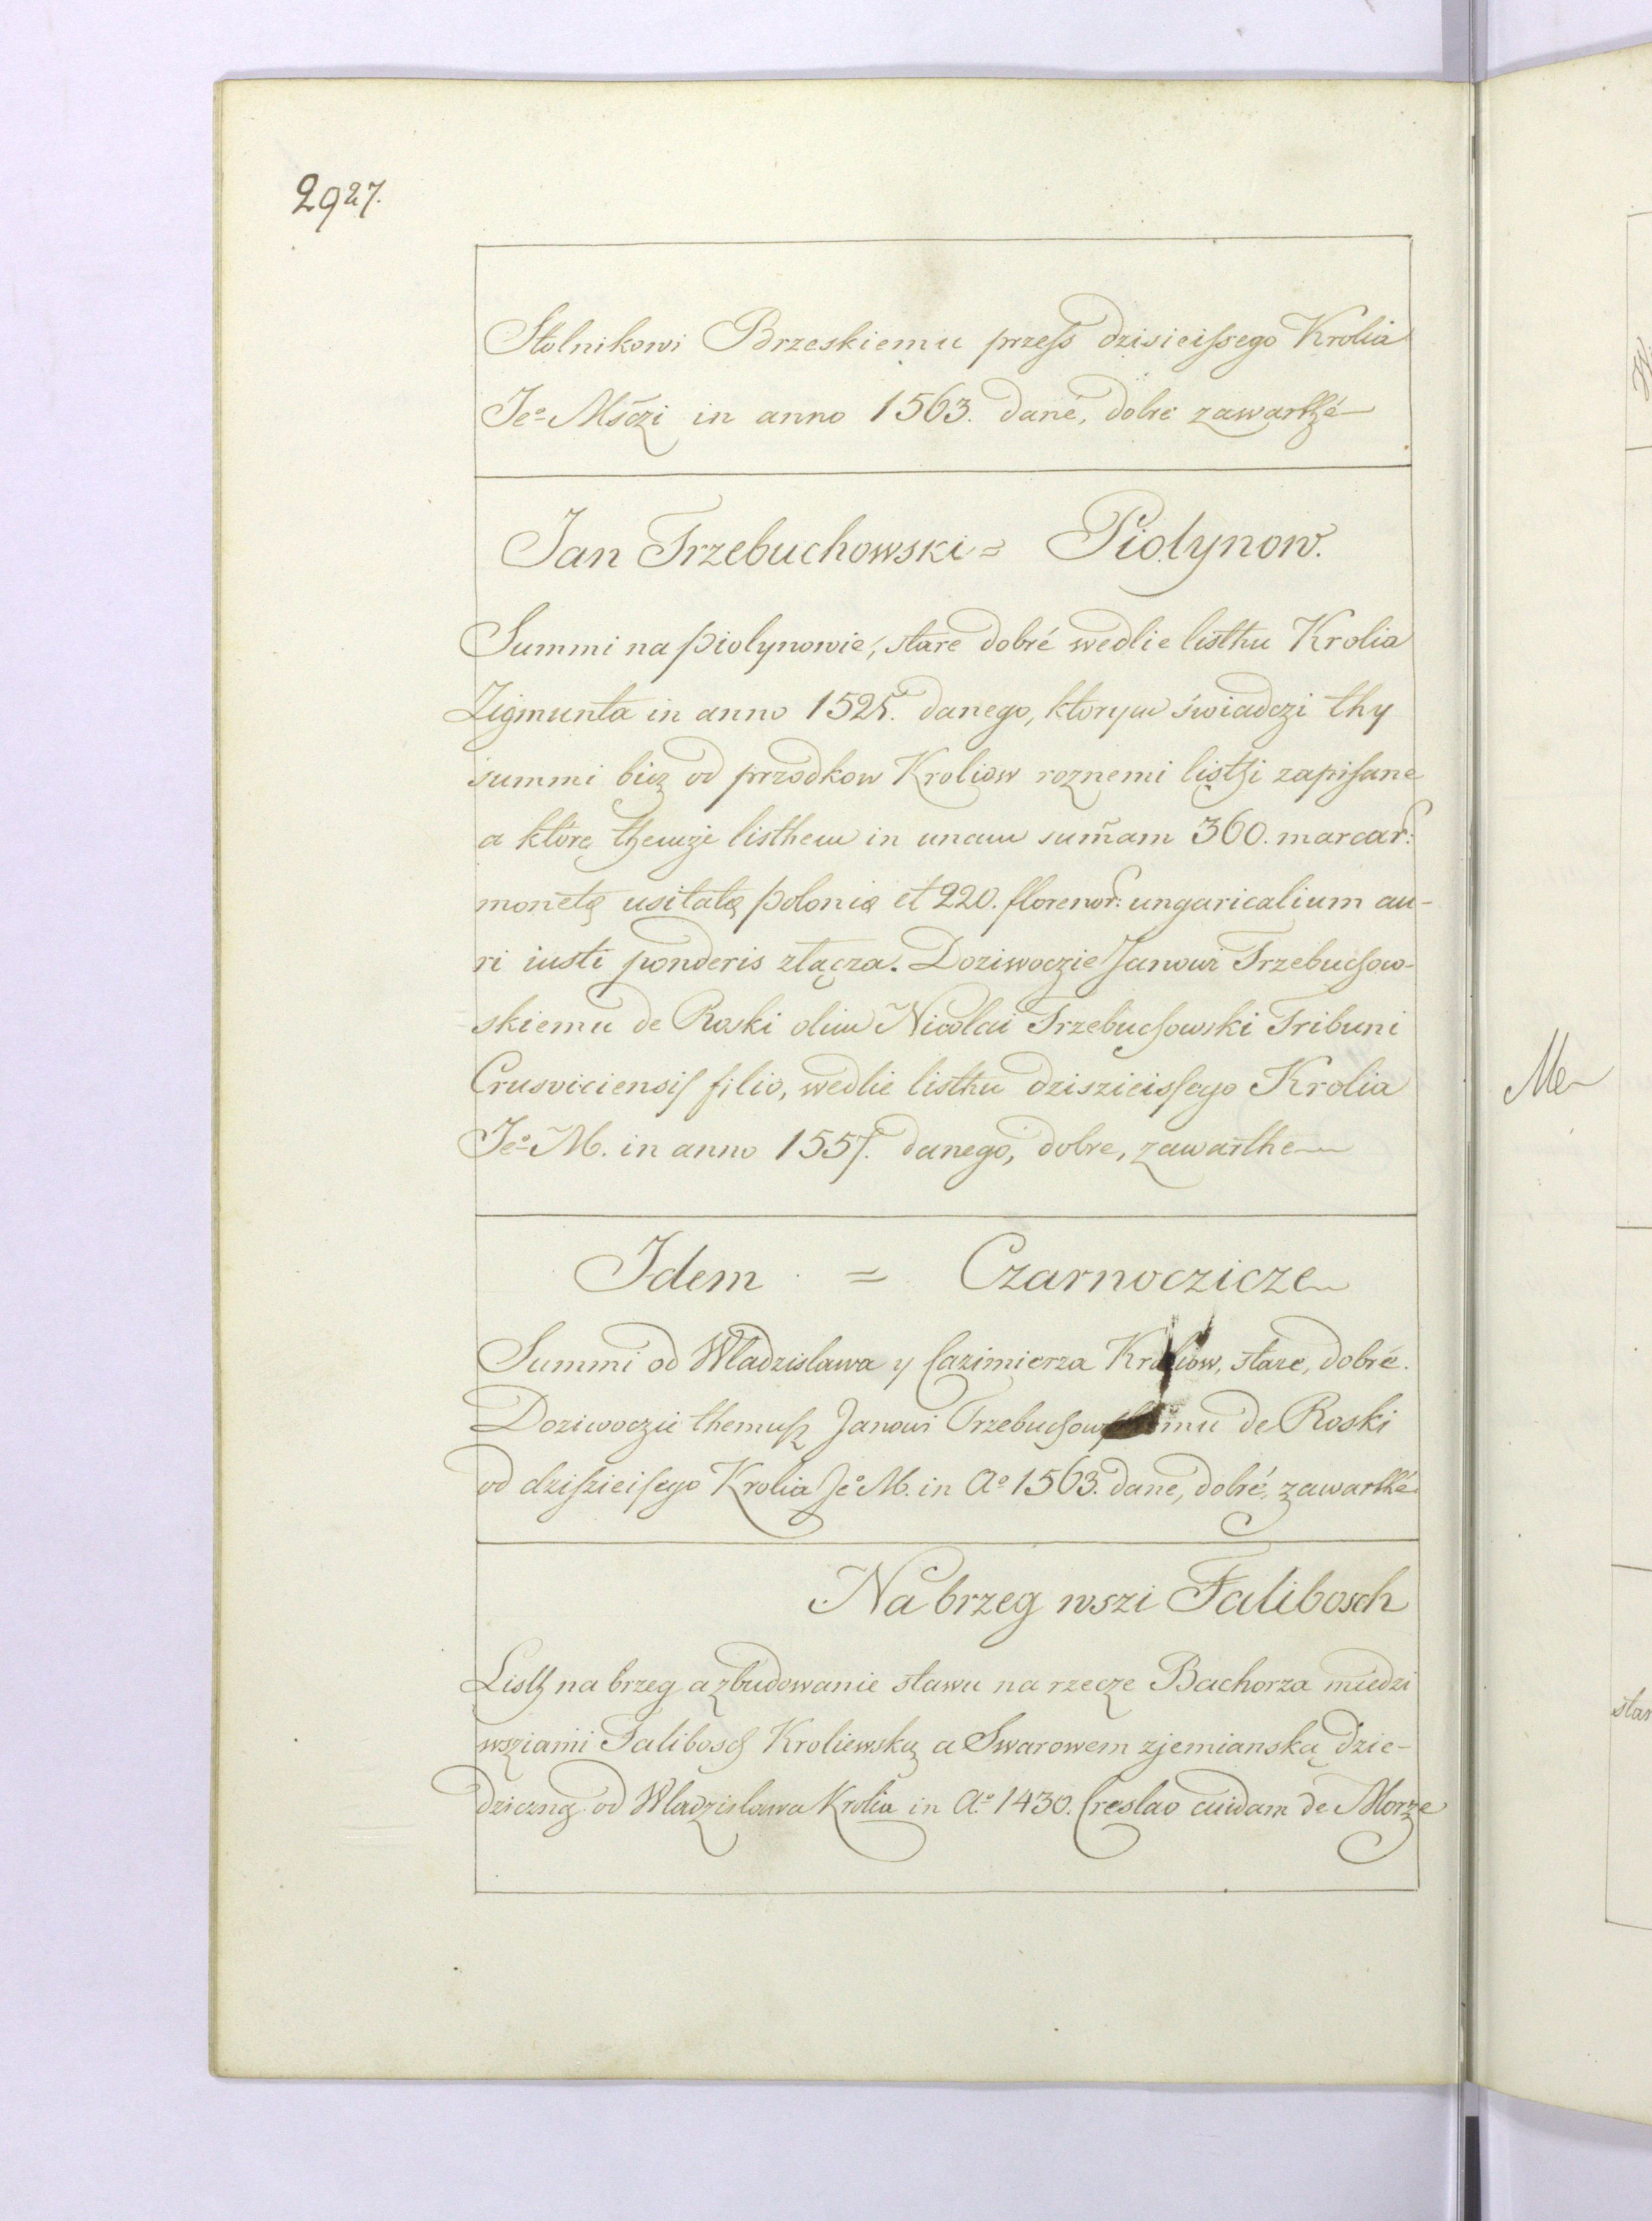 2927.
Stolnikowi Brzeskiemu przeſs dzisieiſsego Krolia
Je° Mśczi in anno 1563. dané, dobre zawarthé
Jan Trzebuchowski = Piolynow.
Summi na piolynowie, stare dobré wedlie listhu Krolia
Zigmunta in anno 1525. danego, ktorym świadczi thy
summi bicz od przodkow Kroliow roznemi listhi zapiſane
a które themzje listhem in unam sum̃am 360. marcar:
monetę usitatę polonię et 220. florenor: ungaricalium au-
ri iusti ponderis złącza. Doziwoczie Janowi Trzebuchow-
skiemu de Roski olim Nicolai Trzebuchowski Tribuni
Crusviciensiſ filio, wedlie listhu dziszieiſsego Krolia
Je° M. in anno 1557. danego, dobre, zawarthe
Idem = Czarnoczicze
Summi od Wladzislawa y Cazimierza Kroliow, stare, dobré.
Doziwoczie themuſz Janowi Trzebuchowskiemu de Roski
od dziſzieiſego Krolia Je° M. in A° 1563. dane, dobré, zawarthé
Na brzeg wszi Falibosch
Listh na brzeg a zbudowanie stawu na rzecze Bachorza miedzi
wsziami Falibosch Kroliewską a Swarowem zjemianską dzie-
dziczną od Wladzislawa Krolia in A° 1430. Creslao cuidam de Morze
Me
star